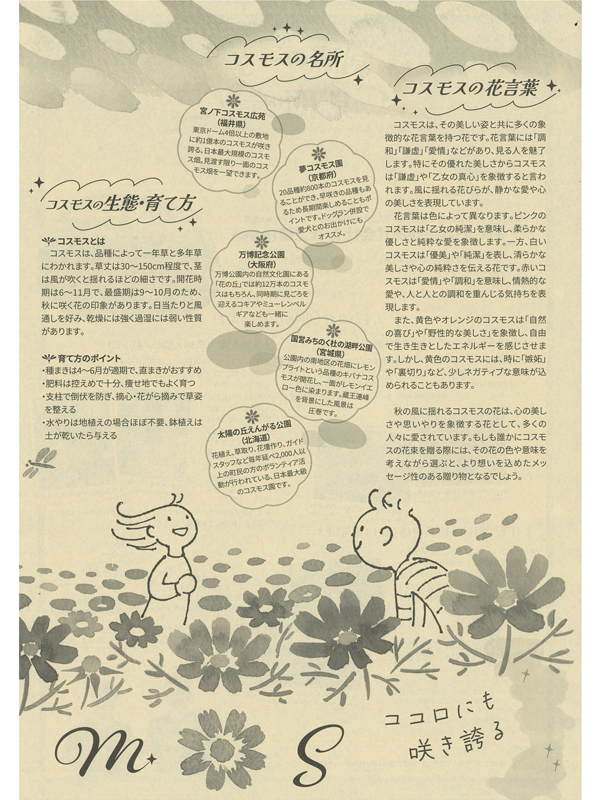 コスモスの名所
宮ノ下コスモス広苑
（福井県）
東京ドーム4個以上の敷地
に約1億本のコスモスが咲き
誇る、日本最大規模のコスモ
ス畑。見渡す限り一面のコス
モス畑を一望できます。
夢コスモス園
（京都府）
20品種約800本のコスモスを見
ることができ、早咲きの品種もあ
るため長期間楽しめることもポ
イントです。ドッグラン併設で
愛犬とのお出かけにも
オススメ。
万博記念公園
（大阪府）
万博公園内の自然文化園にある
「花の丘」では約12万本のコスモ
スはもちろん、同時期に見ごろを
迎えるコキアやミューレンベル
ギアなども一緒に
楽しめます。
国営みちのく杜の湖畔公園
（宮城県）
公園内の南地区の花畑にレモン
ブライトという品種のキバナコス
モスが開花し、一面がレモンイエ
ロー色に染まります。蔵王連峰
を背景にした風景は
圧巻です。
太陽の丘えんがる公園
（北海道）
花植え、草取り、花壇作り、ガイド
スタッフなど毎年延べ2,000人以
上の町民の方のボランティア活
動が行われている、日本最大級
のコスモス園です。
コスモスの生態・育て方
コスモスとは
コスモスは、品種によって一年草と多年草
にわかれます。草丈は30〜150cm程度で、茎
は風が吹くと揺れるほどの細さです。開花時
期は6〜11月で、最盛期は9〜10月のため、
秋に咲く花の印象があります。日当たりと風
通しを好み、乾燥には強く過湿には弱い性質
があります。
育て方のポイント
・種まきは4〜6月が適期で、直まきがおすすめ
・肥料は控えめで十分、痩せ地でもよく育つ
・支柱で倒伏を防ぎ、摘心・花がら摘みで草姿
を整える
・水やりは地植えの場合ほぼ不要、鉢植えは
土が乾いたら与える
コスモスの花言葉
コスモスは、その美しい姿と共に多くの象
徴的な花言葉を持つ花です。花言葉には「調
和」「謙虚」「愛情」などがあり、見る人を魅了
します。特にその優れた美しさからコスモス
は「謙虚」や「乙女の真心」を象徴すると言わ
れます。風に揺れる花びらが、静かな愛や心
の美しさを表現しています。
花言葉は色によって異なります。ピンクの
コスモスは「乙女の純潔」を意味し、柔らかな
優しさと純粋な愛を象徴します。一方、白い
コスモスは「優美」や「純潔」を表し、清らかな
美しさや心の純粋さを伝える花です。赤いコ
スモスは「愛情」や「調和」を意味し、情熱的な
愛や、人と人との調和を重んじる気持ちを表
現します。
また、黄色やオレンジのコスモスは「自然
の喜び」や「野性的な美しさ」を象徴し、自由
で生き生きとしたエネルギーを感じさせま
す。しかし、黄色のコスモスには、時に「嫉妬」
や「裏切り」など、少しネガティブな意味が込
められることもあります。
秋の風に揺れるコスモスの花は、心の美し
さや思いやりを象徴する花として、多くの
人々に愛されています。もしも誰かにコスモ
スの花束を贈る際には、その花の色や意味を
考えながら選ぶと、より想いを込めたメッ
セージ性のある贈り物となるでしょう。
ココロにも
咲き誇る
m S